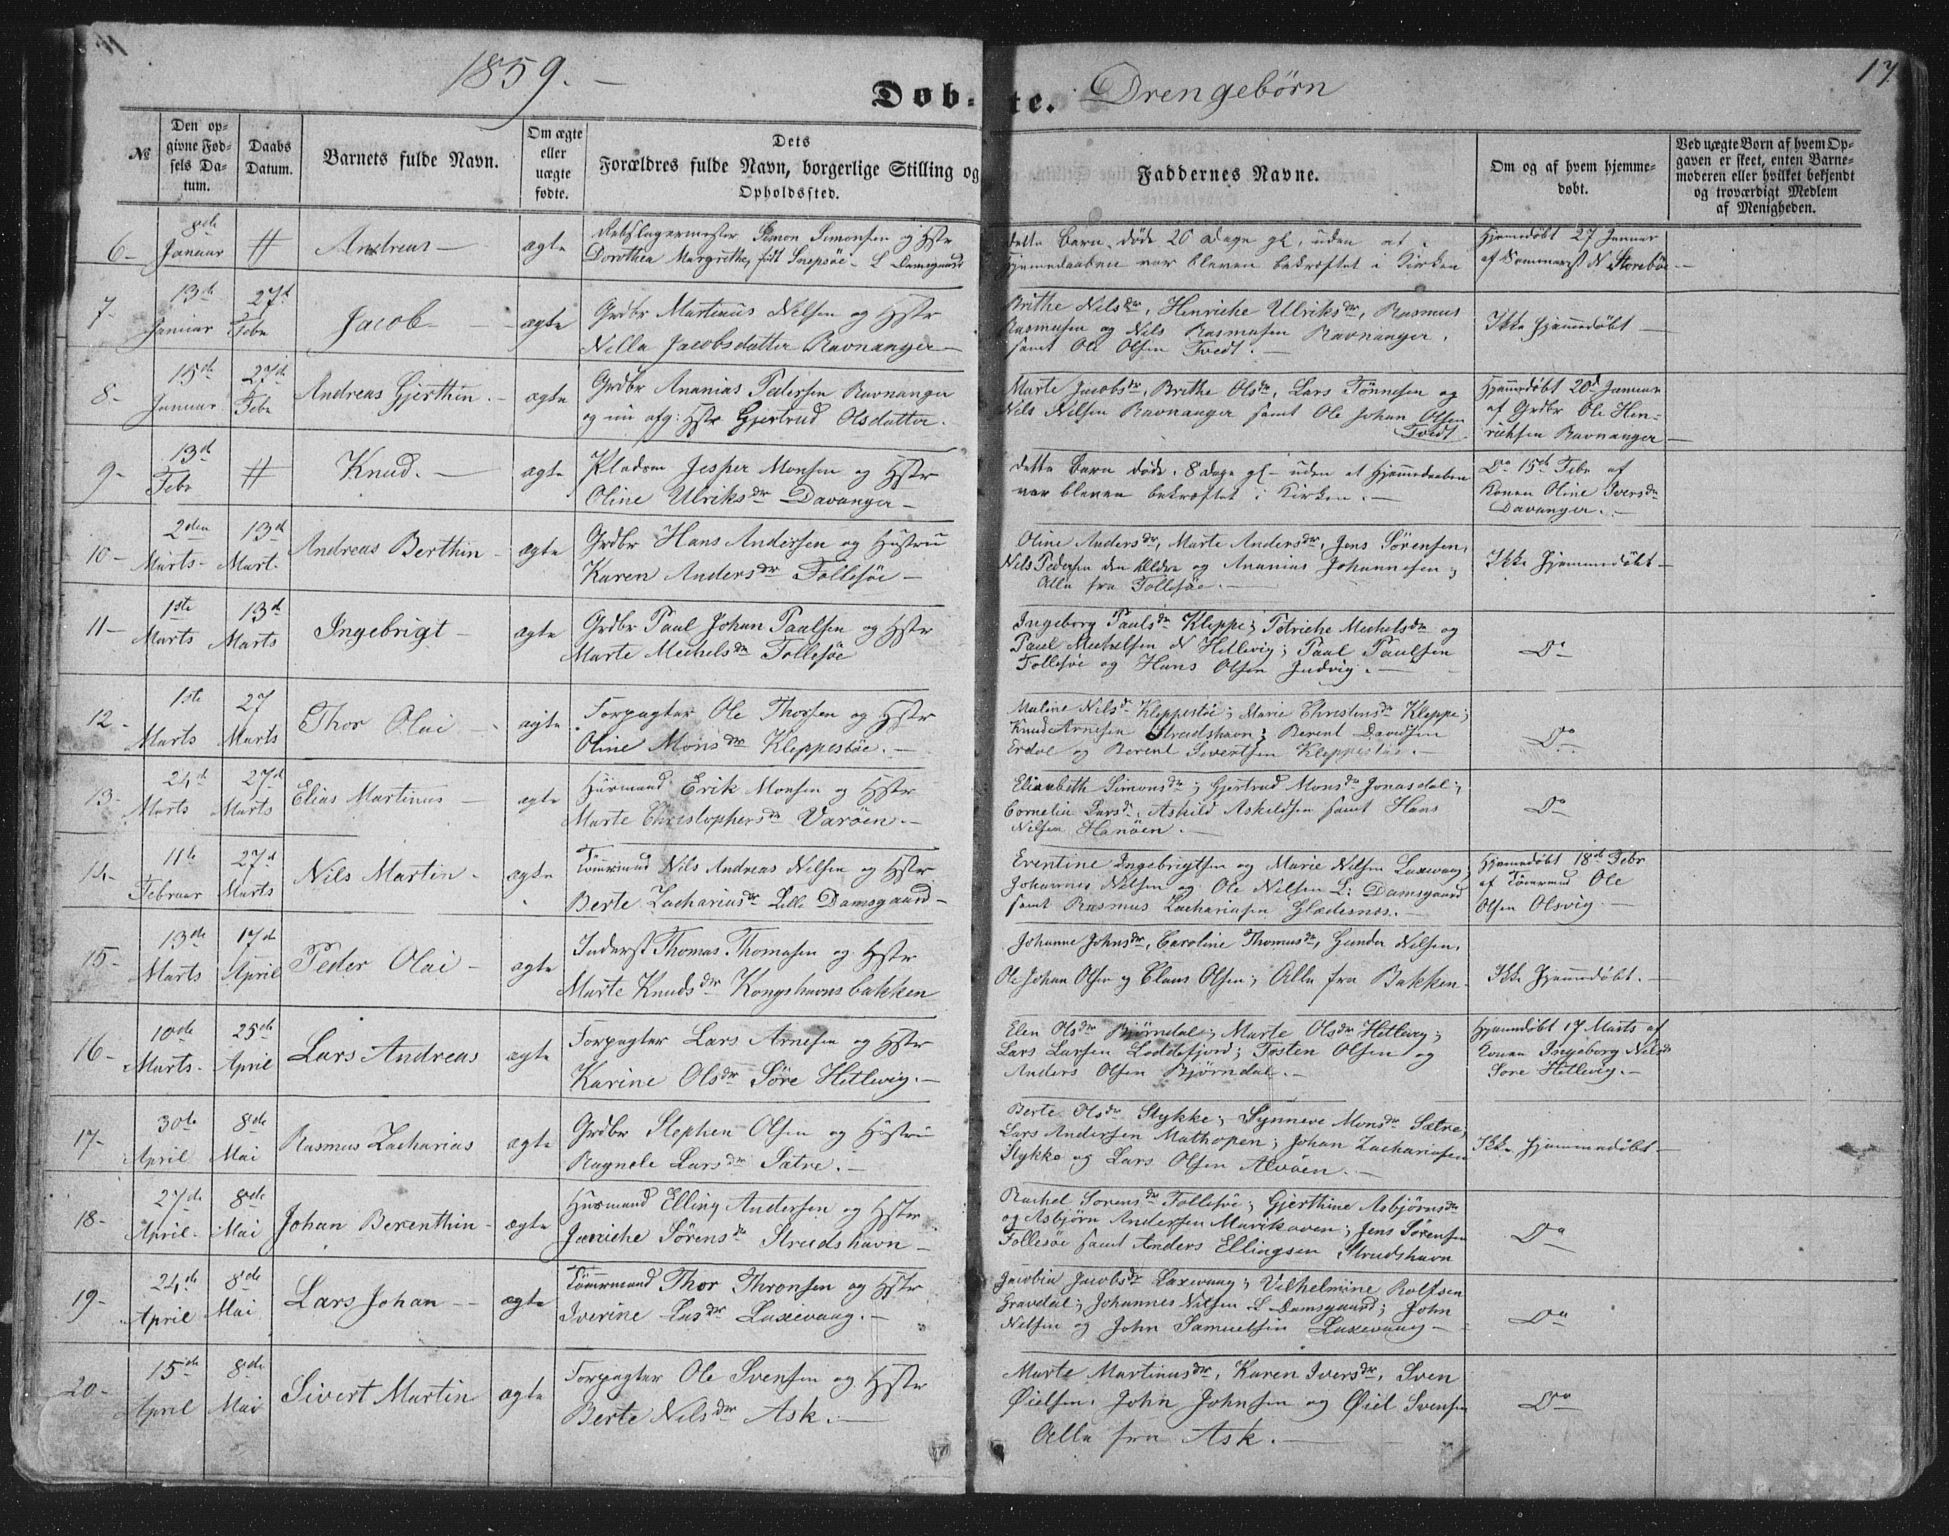 1859. –
Døb-te. Drengebørn
17
№
Den op-
givne Fød-
sels Da-
tum.
Daabs
Datum.
Barnets fulde Navn.
Om ægte
eller
uægte
fødte.
Dets
Forældres fulde Navn, borgerlige Stilling og
Opholdssted.
Faddernes Navne.
Om og af hvem hjemme-
døbt.
Ved uægte Børn af hvem Op-
gaven er skeet, enten Barne-
moderen eller hvilket bekjendt
og troværdigt Medlem
af Menigheden.
6 –
8de
Januar
#
Andreas –
ægte
Rebslagermester Simon Simonsen og Hstr
Dorothea Margrethe, født Snepsøe – L Damsgaard
dette Barn døde 20 Dage gl, uden at
Hjemedaaben var bleven bekræftet i Kirken
Hjemedøbt 27 Januar
af N Storebøe –
7 –
13de
Januar
27d
Febr
Jacob –
ægte
Grdbr Martinus Nelsen og Hstr
Nille Jacobsdatter Ravnanger –
Brithe Nilsdr, Henriche Ulriksdr, Rasmus
Rasmusen og Nils Rasmusen Ravnanger,
samt Ole Olsen Tvedt. –
Ikke Hjemmedøbt –
8 –
15de
Januar
27de
Febr
Andreas Gjerthin. –
ægte
Grdbr Ananias Pedersen Ravnanger
og nu afg: Hstr Gjertrud Olsdatter.
Marte Jacobsdr, Brithe Olsdr, Lars Tønnesen og
Nils Nilsen Ravnanger samt Ole Johan Olsen
Tvedt
Hjemmedøbt 20d Januar
af Grdbr Ole Hen-
richsen Ravnanger –
9 –
13d
Febr
#
Knud. –
ægte
Pladsm Jesper Monsen og Hstr
Oline Ulriksdr Davanger –
dette Barn døde 8 Dage gl – uden at Hjemmedaaben
var bleven bekræftet i Kirken. –
Do 15de Febr af
Konen Oline Iversdr
Davanger. –
10 –
2den
Marts –
13d
Mart.
Andreas Berthin –
ægte
Grdbr Hans Andersen og Hustru
Karen Andersdr Follesøe –
Oline Andersdr, Marte Andersdr, Jens Sørensen,
Nils Pedersen den Eldre og Ananias Johannesen;
Alle fra Follesøe. –
Ikke Hjemmedøbt –
11 –
1ste
Marts
13d
Marts
Ingebrigt –
ægte
Grdbr Paul Johan Paulsen og Hstr
Marte Michelsdr Follesøe
Ingeborg Paulsdr Kleppe; Petriche Michelsdr og
Paul Michelsen N Hetlevig; Paul Paulsen
Follesøe og Hans Olsen Indvig. –
Do
12 –
1ste
Marts
27
Marts
Thor Olai –
ægte
Forpagter Ole Thorsen og Hstr
Oline Monsdr Kleppestøe. –
Maline Nilsdr Kleppestøe; Marie Christensdr Kleppe;
Knud Arnesen Strudshavn; Berent Davidsen
Erdal og Berent Sivertsen Kleppestøe. –
Do
13 –
24d
Marts
27d
Marts
Elias Martinus –
ægte
Husmand Erik Monsen og Hstr
Marte Christophersdr Varøen. –
Elisabeth Simonsdr; Gjertrud Monsdr Jonasdal;
Cornelia Larsdr, Askild Askildsen samt Hans
Nilsen Hanøen. –
Do
14 –
11te
Februar
27d
Marts
Nils Martin –
ægte
Tømrmand Nils Andreas Nilsen og Hstr
Berte Zachariasdr Lille Damsgaard –
Erentine Ingebrigtsen og Marie Nilsen Laxevaag;
Johannes Nilsen og Ole Nilsen L: Damsgaard
samt Rasmus Zachariasen Gladesnes. –
Hjemedøbt 18de Febr
af Tømrmd Ole
Olsen Olsvig –
15 –
13de
Marts
17de
April
Peder Olai –
ægte
Inderst Thomas Thomasen og Hstr
Marte Knudsdr Kongshavnsbakken
Johanne Johnsdr, Caroline Thomasdr, Gunder Nilsen,
Ole Johan Olsen og Claus Olsen; Alle fra Bakken –
Ikke Hjemmedøbt. –
16 –
10de
Marts –
25de
April
Lars Andreas
ægte
Forpagter Lars Arnesen og Hstr
Karine Olsdr Søre Hetlevig. –
Elen Olsdr Bjørndal; Marte Olsdr Hetlevig;
Lars Larsen Loddefjord; Tosten Olsen og
Anders Olsen Bjørndal. –
Hjemmdøbt 17 Marts af
Konen Ingeborg Nilsdr
Søre Hetlevig. –
17 –
30te
April
8de
Mai
Rasmus Zacharias
ægte
Grdbr Stephen Olsen og Hustru
Ragnele Larsdr Sætre. –
Berte Olsdr Stykke; Synneve Monsdr Sætre;
Lars Andersen Mathopen; Johan Zachariasen
Stykke og Lars Olsen Alvøen. –
Ikke Hjemmedøbt –
18 –
27de
April –
8de
Mai
Johan Berenthin –
ægte
Husmand Elling Andersen og Hstr
Jæniche Sørensdr Strudshavn –
Rachel Sørensdr Follesøe; Gjerthine Asbjørnsdr
og Asbjørn Andersen Marikoven; Jens Sørensen
Follesøe samt Anders Ellingsen Strudshavn
Do
19 –
24de
April
8de
Mai
Lars Johan –
ægte
Tømrmand Thor Thronsen og Hstr
Iverine Lasdr Laxevaag. –
Jacobia Jacobsdr Laxevaag; Vilhelmine Rolfsen
Gravdal; Johannes Nilsen L Damsgaard; John
Nilsen og John Samuelsen Laxevaag –
Do
20 –
15de
April
8de
Mai
Sivert Martin
ægte
Forpagter Ole Svensen og Hstr
Berte Nilsdr Ask. –
Marte Martinusdr, Karen Iversdr, Sven
Øielsen, John Johnsen og Øiel Svensen
Alle fra Ask. –
Do